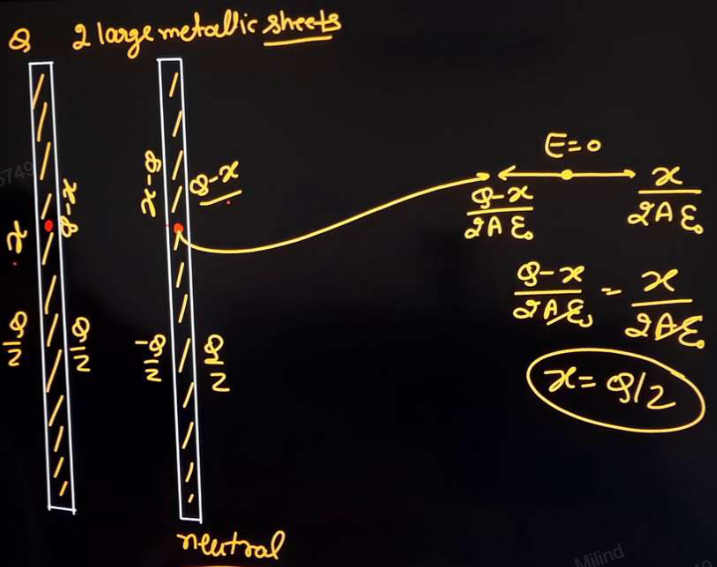 Q 2 large metallic sheets
5749
x
Q-x
x-Q
Q-x
Q/2
Q/2
-Q/2
Q/2
neutral
E=0
Q-x/2Aε₀
x/2Aε₀
Q-x/2Aε₀ = x/2Aε₀
x = Q/2
Milind